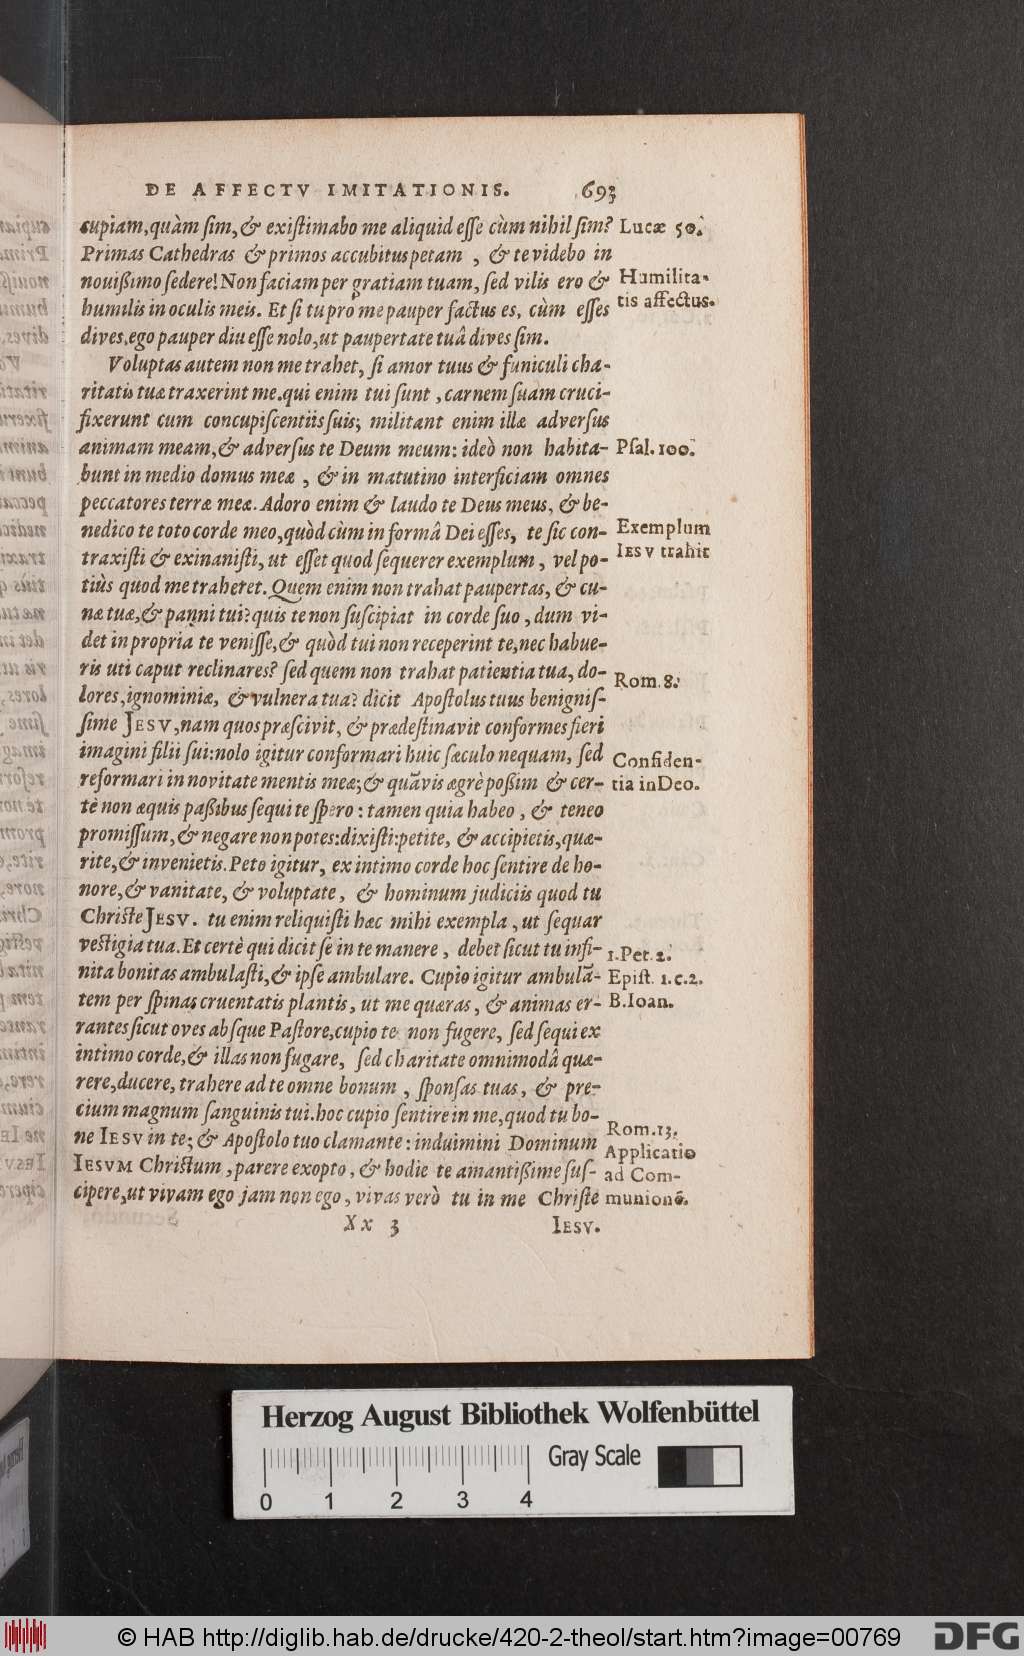 DE AFFECTV IMITATIONIS. 693
cupiam, quàm sim, & existimabo me aliquid esse cùm nihil sim? Lucæ 50.
Primas Cathedras & primos accubitus petam, & te videbo in
novißimo sedere! Non faciam per gratiam tuam, sed vilis ero & Humilita-
humilis in oculis meis. Et si tu prò me pauper factus es, cùm esses tis affectus.
dives, ego pauper diu esse nolo, ut paupertate tuâ dives sim.
Voluptas autem non me trahet, si amor tuus & funiculi cha-
ritatis tuæ traxerint me. qui enim tui sunt, carnem suam cruci-
fixerunt cum concupiscentiis suis; militant enim illæ adversus
animam meam, & adversus te Deum meum: ideò non habita- Psal. 100.
bunt in medio domus meæ, & in matutino interficiam omnes
peccatores terræ meæ. Adoro enim & laudo te Deus meus, & be-
nedico te toto corde meo, quòd cùm in formâ Dei esses, te sic con- Exemplum
traxisti & exinanisti, ut esset quod sequerer exemplum, vel po- IESV trahit
tiùs quod me traheret. Quem enim non trahat paupertas, & cu-
næ tuæ, & panni tui? quis te non suscipiat in corde suo, dum vi-
det in propria te venisse, & quòd tui non receperint te, nec habue-
ris uti caput reclinares? sed quem non trahat patientia tua, do- Rom. 8.
lores, ignominiæ, & vulnera tua? dicit Apostolus tuus benignis-
sime JESV, nam quos præscivit, & prædestinavit conformes fieri
imagini filii sui: nolo igitur conformari huic sæculo nequam, sed Confiden-
reformari in novitate mentis meæ; & quãvis ægrè poßim & cer- tia in Deo.
tè non æquis paßibus sequi te spero: tamen quia habeo, & teneo
promissum, & negare non potes: dixisti: petite, & accipietis, quæ-
rite, & invenietis. Peto igitur, ex intimo corde hoc sentire de ho-
nore, & vanitate, & voluptate, & hominum judiciis quod tu
Christe JESV. tu enim reliquisti hæc mihi exempla, ut sequar
vestigia tua. Et certè qui dicit se in te manere, debet sicut tu infi- 1. Pet. 2.
nita bonitas ambulasti, & ipse ambulare. Cupio igitur ambulã- Epist. 1. c. 2.
tem per spinas cruentatis plantis, ut me quæras, & animas er- B. Ioan.
rantes sicut oves absque Pastore, cupio te non fugere, sed sequi ex
intimo corde, & illas non fugare, sed charitate omnimodâ quæ-
rere, ducere, trahere ad te omne bonum, sponsas tuas, & pre-
cium magnum sanguinis tui. hoc cupio sentire in me, quod tu bo-
ne IESV in te; & Apostolo tuo clamante: induimini Dominum Rom. 13.
IESVM Christum, parere exopto, & hodie te amantißime sus- Applicatio
cipere, ut vivam ego jam non ego, vivas verò tu in me Christe ad Com-
munionē.
Xx 3 IESV.
Herzog August Bibliothek Wolfenbüttel
Gray Scale
0 1 2 3 4
© HAB http://diglib.hab.de/drucke/420-2-theol/start.htm?image=00769
DFG